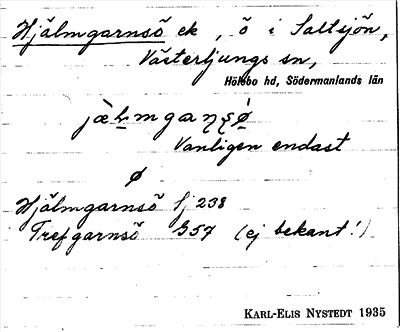 Hjälmgarnsö ek, ö i Saltsjön,
Västerljungs sn,
Hölebo hd, Södermanlands län
Vanligen endast
ø
Hjälmgarnsö Ij 238
Trefgarnsö G57 (ej bekant!)
KARL-ELIS NYSTEDT 1935